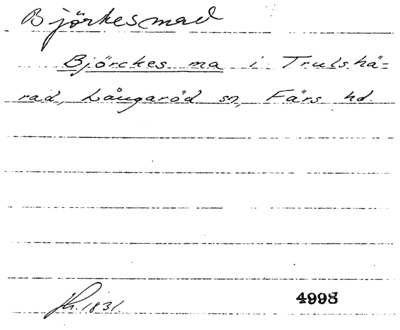 Björkesmad
Björckes ma i Trulshä-
rad, Långaröd sn, Färs hd.
1831
4998